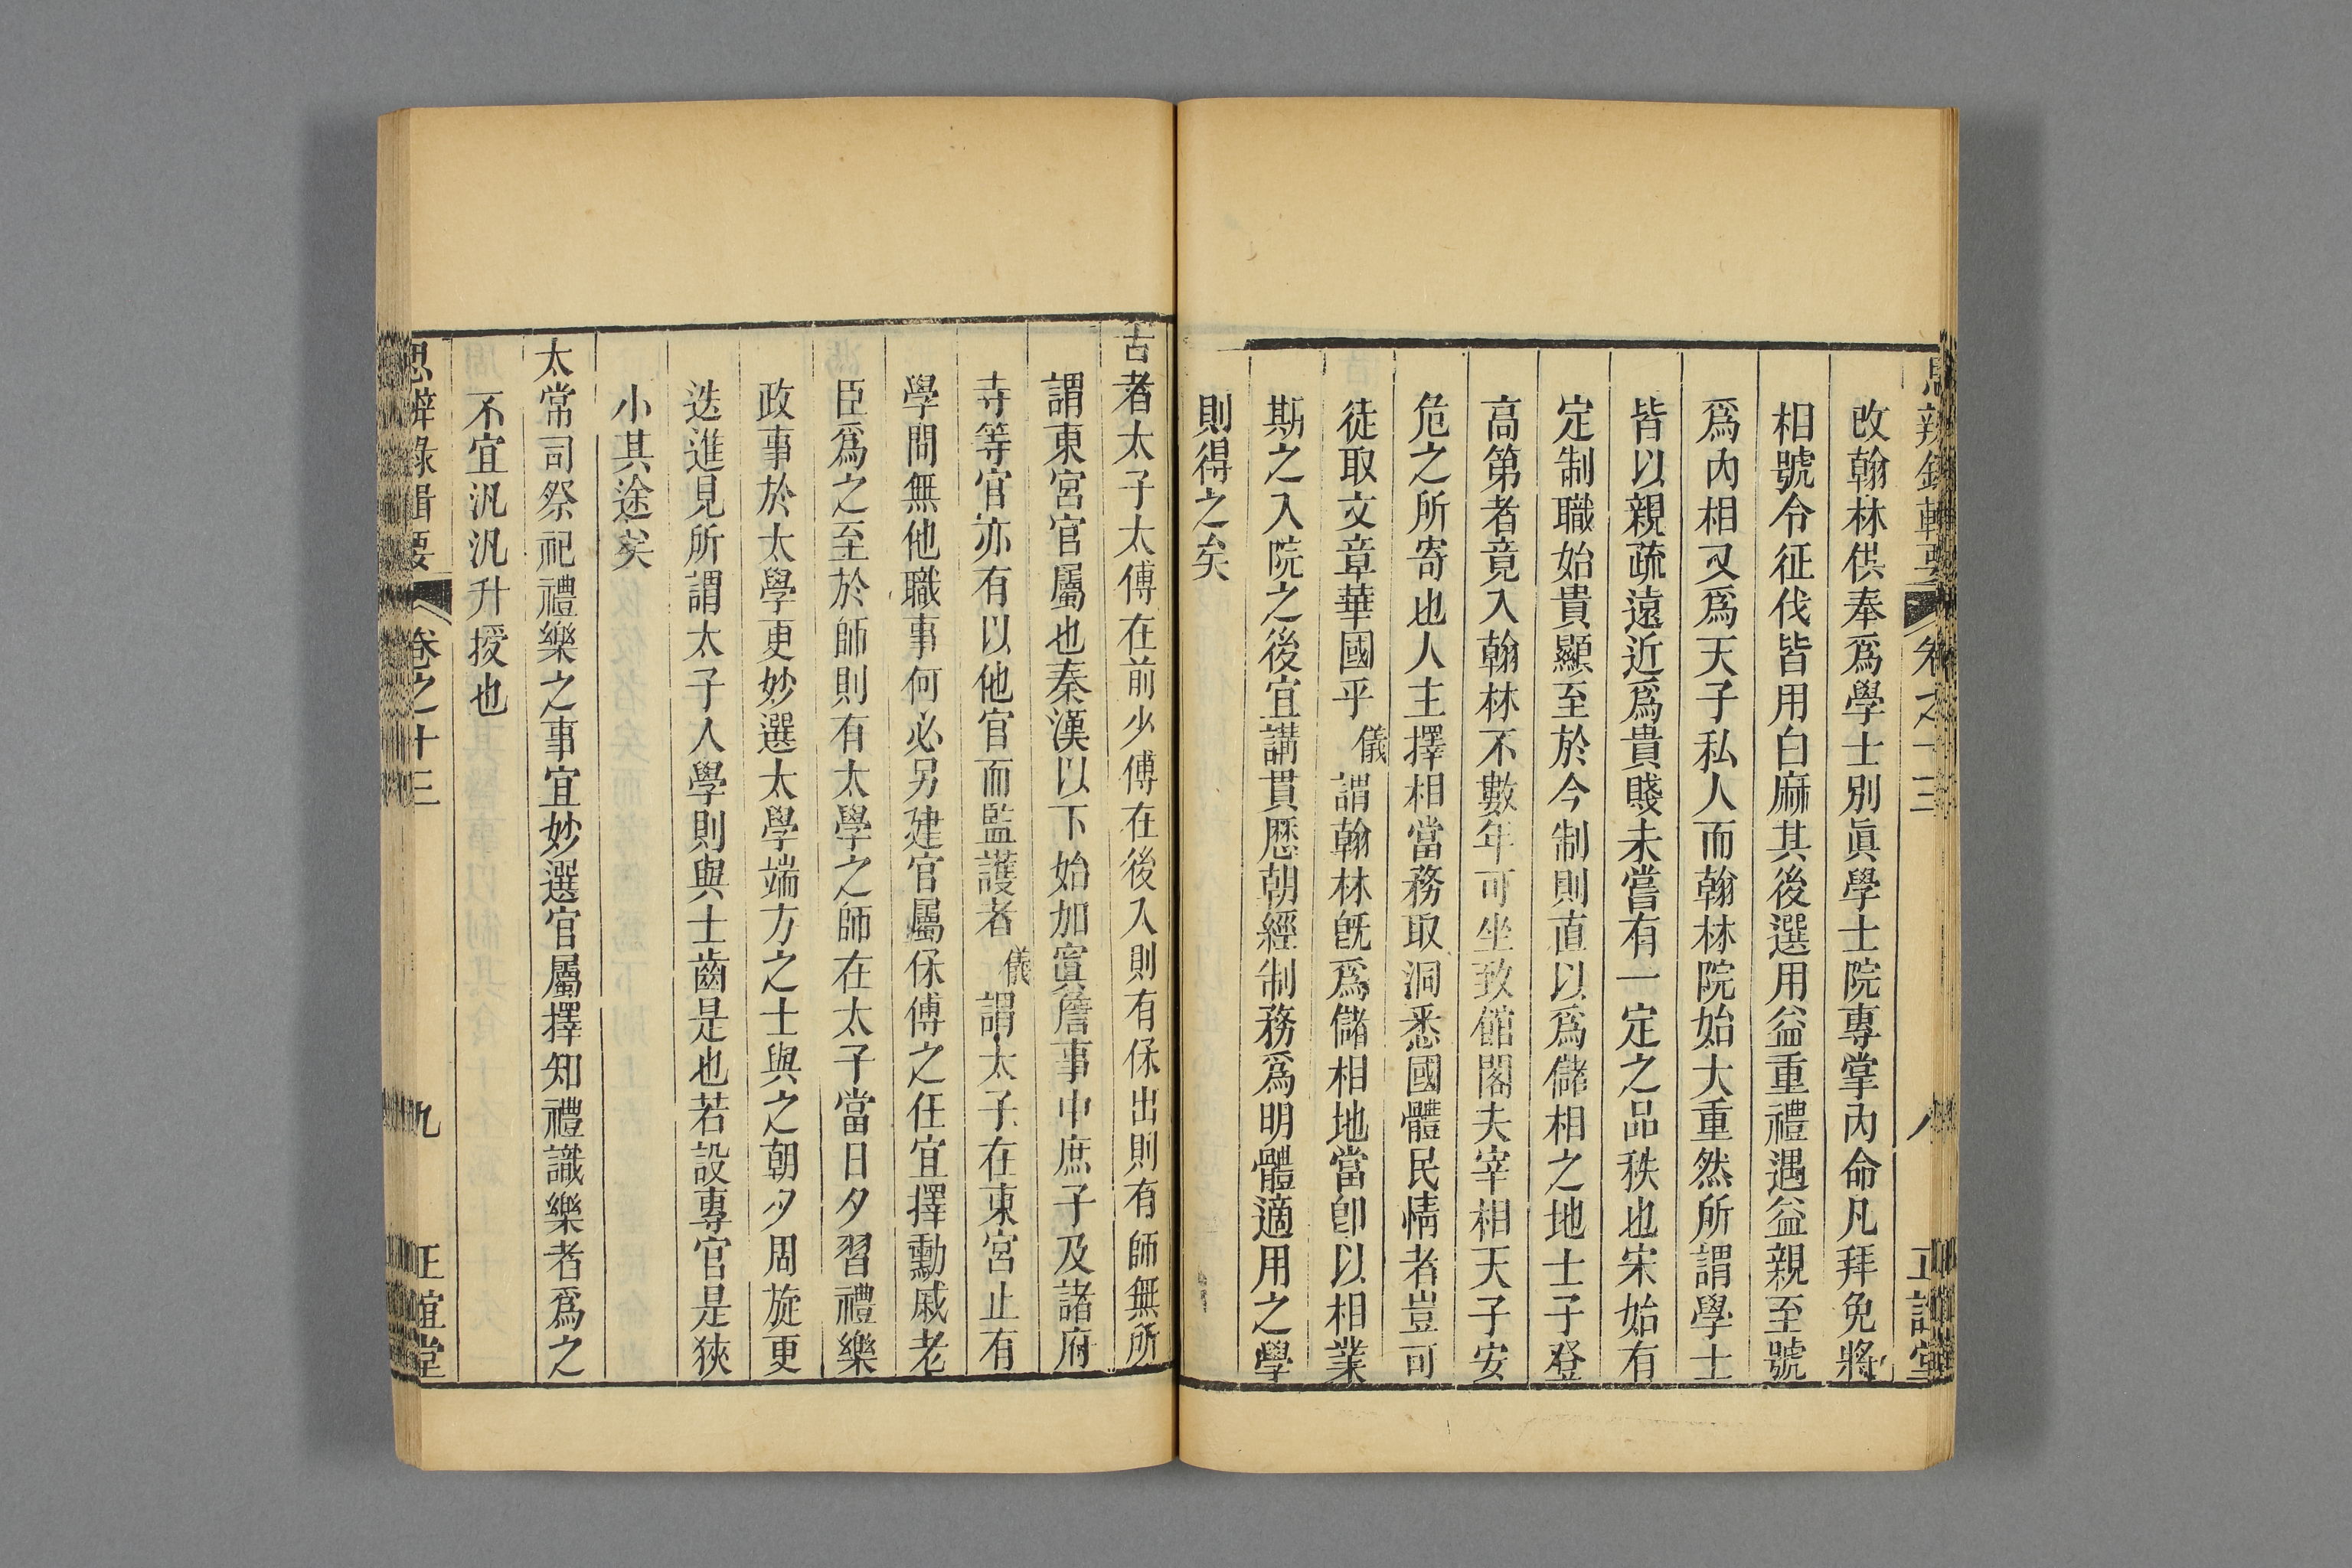 思辨錄輯要 卷之十三 八 正誼堂
改翰林供奉爲學士別眞學士院專掌內命凡拜免將
相號令征伐皆用白麻其後選用益重禮遇益親至號
爲內相又爲天子私人而翰林院始大重然所謂學士
皆以親疏遠近爲貴賤未嘗有一定之品秩也宋始有
定制職始貴顯至於今制則直以爲儲相之地士子登
高第者竟入翰林不數年可坐致館閣夫宰相天子安
危之所寄也人主擇相當務取洞悉國體民情者豈可
徒取文章華國乎儀謂翰林旣爲儲相地當卽以相業
斯之入院之後宜講貫歷朝經制務爲明體適用之學
則得之矣
古者太子太傅在前少傅在後入則有保出則有師無所
謂東宮官屬也秦漢以下始加寘詹事中庶子及諸府
寺等官亦有以他官而監護者儀謂太子在東宮止有
學問無他職事何必另建官屬保傅之任宜擇勳戚老
臣爲之至於師則有太學之師在太子當日夕習禮樂
政事於太學更妙選太學端方之士與之朝夕周旋更
迭進見所謂太子入學則與士齒是也若設專官是狹
小其途矣
太常司祭祀禮樂之事宜妙選官屬擇知禮識樂者爲之
不宜汎汎升授也
思辨錄輯要 卷之十三 九 正誼堂